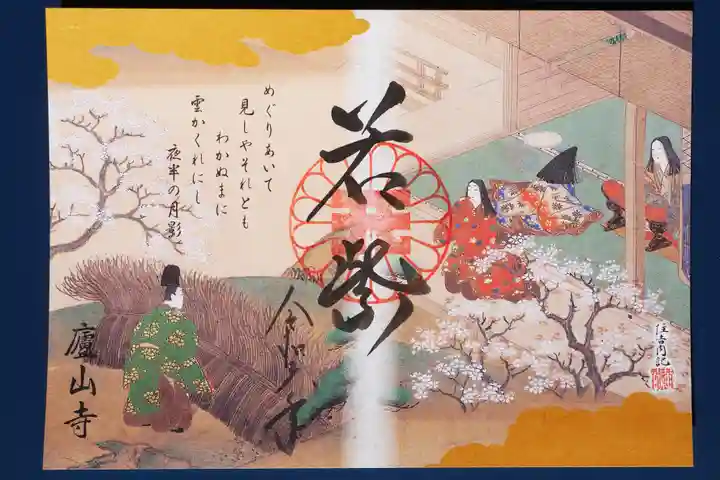 めぐりあいて
見しやそれとも
わかぬまに
雲かくれにし
夜半の月影
若紫
廬山寺
住吉内記